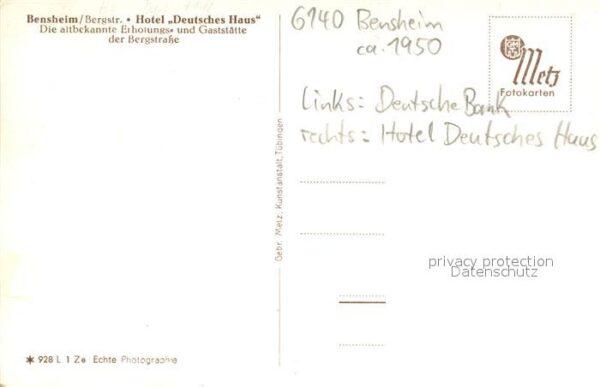 Bensheim/Bergstr. • Hotel „Deutsches Haus“
Die altbekannte Erholungs- und Gaststätte
der Bergstraße
6140 Bensheim
ca. 1950
Metz
Fotokarten
Links: Deutsche Bank
rechts: Hotel Deutsches Haus
Gebr. Metz, Kunstanstalt, Tübingen
privacy protection
Datenschutz
✶ 928 L 1 Ze Echte Photographie